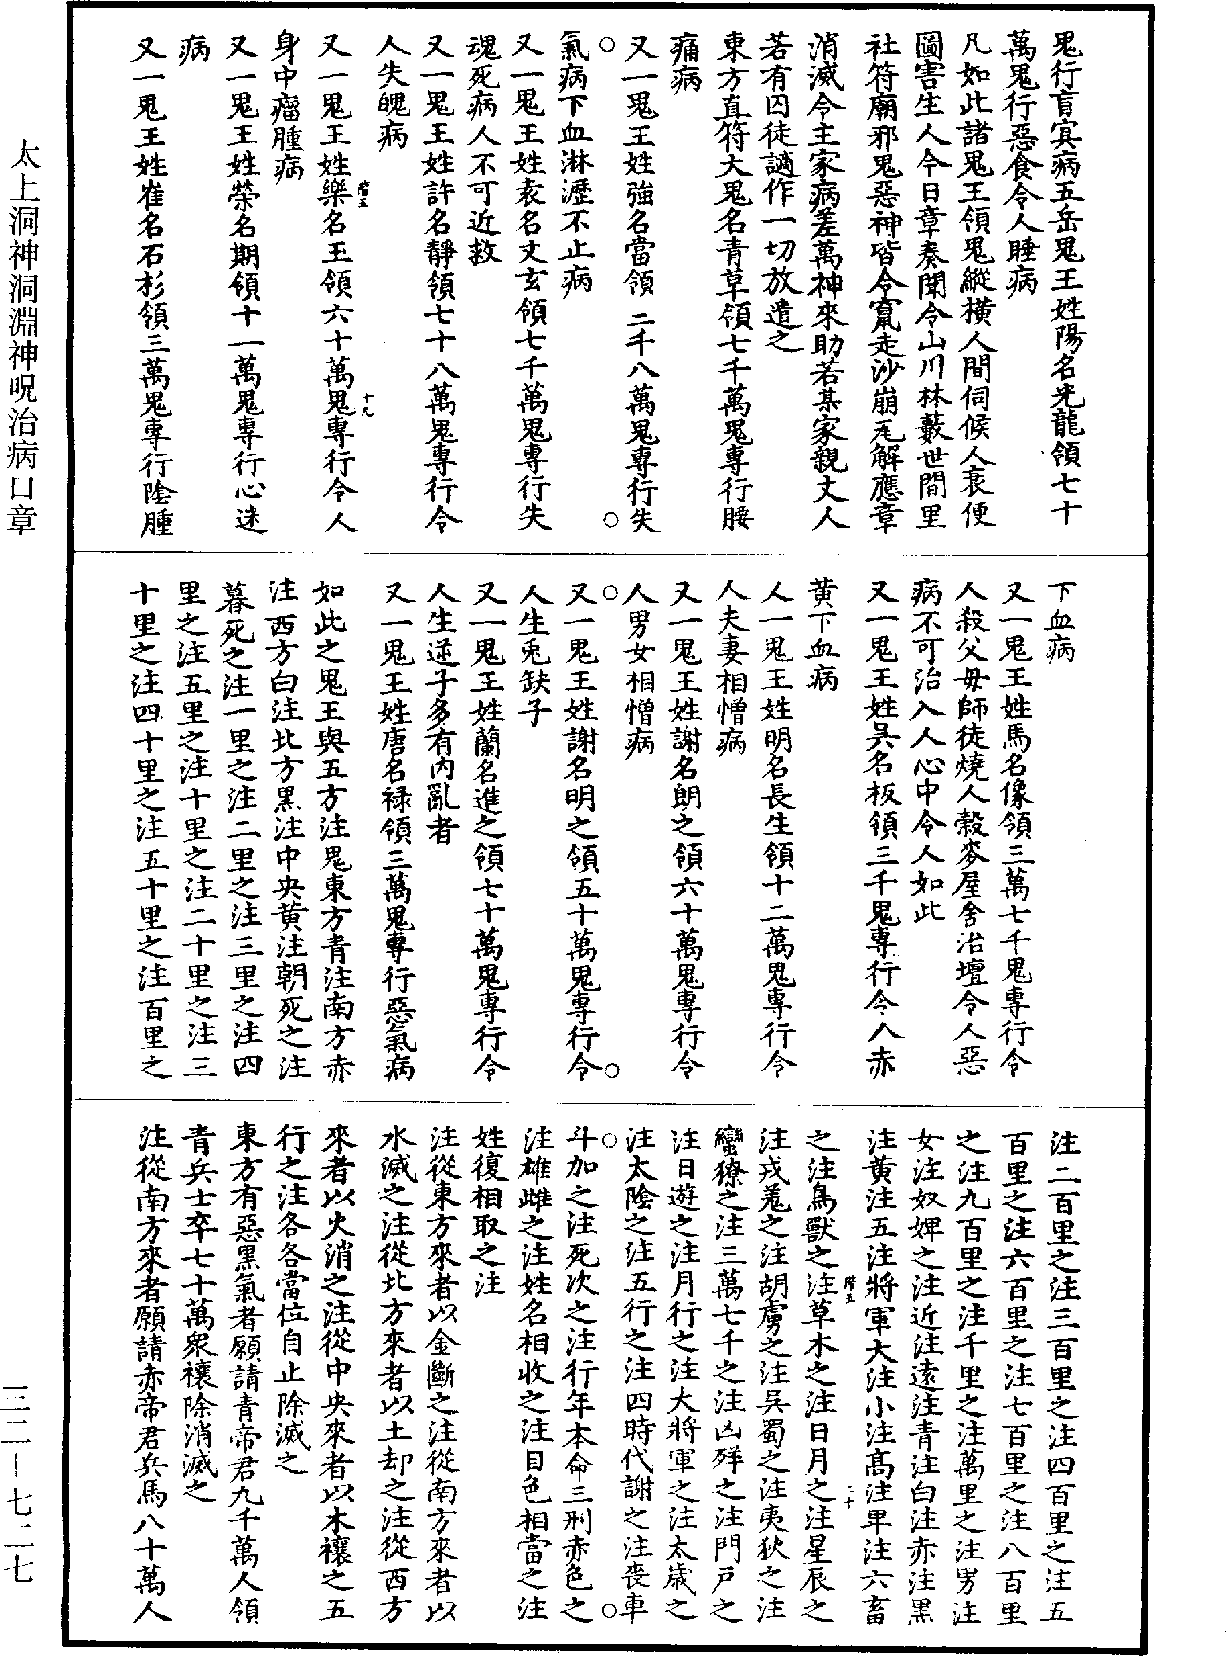 太上洞神洞淵神呪治病口章
三二—七二七
鬼行盲㝠病五岳鬼王姓陽名光龍領七十
萬鬼行惡食令人睡病
凡如此諸鬼王領鬼縱橫人間伺候人衰便
圖害生人今日章奏聞令山川林藪世間里
社符廟邪鬼惡神皆令竄走沙崩瓦解應章
消滅令主家病差萬神來助若某家親丈人
若有囚徒謫作一切放遣之
東方直符大鬼名青草領七千萬鬼專行腰
痛病
又一鬼王姓強名當領二千八萬鬼專行失
氣病下血淋瀝不止病
又一鬼王姓袁名丈玄領七千萬鬼專行失
魂死病人不可近救
又一鬼王姓許名靜領七十八萬鬼專行令
人失魄病
又一鬼王姓樂名王領六十萬鬼專行令人
階五
十九
身中癰腫病
又一鬼王姓榮名期領十一萬鬼專行心迷
病
又一鬼王姓崔名石杉領三萬鬼專行陰腫
下血病
又一鬼王姓馬名像領三萬七千鬼專行令
人殺父母師徒燒人穀麥屋舍治壇令人惡
病不可治入人心中令人如此
又一鬼王姓吳名板領三千鬼專行令人赤
黃下血病
人一鬼王姓明名長生領十二萬鬼專行令
人夫妻相憎病
又一鬼王姓謝名朗之領六十萬鬼專行令
人男女相憎病
又一鬼王姓謝名明之領五十萬鬼專行令
人生兎缺子
又一鬼王姓蘭名進之領七十萬鬼專行令
人生逆子多有內亂者
又一鬼王姓唐名祿領三萬鬼專行惡氣病
如此之鬼王與五方注鬼東方青注南方赤
注西方白注北方黑注中央黃注朝死之注
暮死之注一里之注二里之注三里之注四
里之注五里之注十里之注二十里之注三
十里之注四十里之注五十里之注百里之
注二百里之注三百里之注四百里之注五
百里之注六百里之注七百里之注八百里
之注九百里之注千里之注萬里之注男注
女注奴婢之注近注遠注青注白注赤注黑
注黃注五注將軍大注小注高注卑注六畜
之注鳥獸之注草木之注日月之注星辰之
階五
二十
注戎羗之注胡虜之注吳蜀之注夷狄之注
蠻獠之注三萬七千之注凶殍之注門戶之
注日遊之注月行之注大將軍之注太歲之
注太陰之注五行之注四時代謝之注喪車
斗加之注死次之注行年本命三刑赤色之
注雄雌之注姓名相收之注目色相當之注
姓復相取之注
注從東方來者以金斷之注從南方來者以
水滅之注從北方來者以土却之注從西方
來者以火消之注從中央來者以木禳之五
行之注各各當位自止除滅之
東方有惡黑氣者願請青帝君九千萬人領
青兵士卒七十萬衆禳除消滅之
注從南方來者願請赤帝君兵馬八十萬人